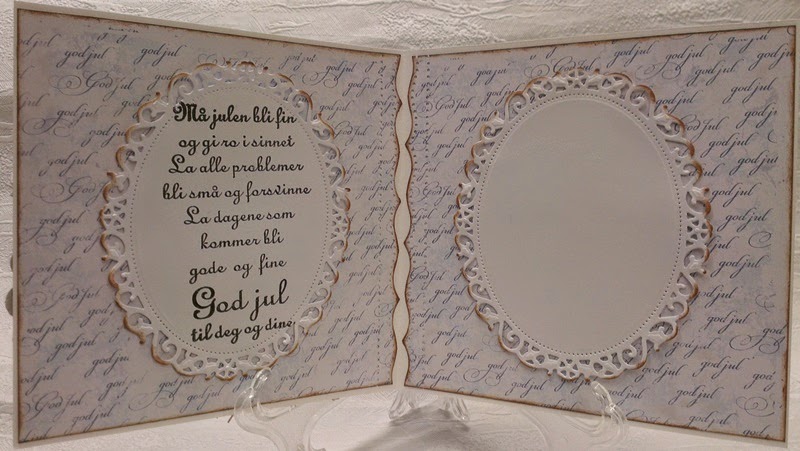 Må julen bli fin
og gi ro i sinnet
La alle problemer
bli små og forsvinne
La dagene som
kommer bli
gode og fine
God jul
til deg og dine
god jul